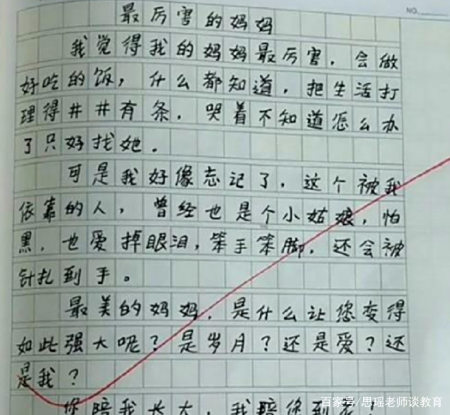 NO.
最厉害的妈妈
我觉得我的妈妈最厉害，会做
好吃的饭，什么都知道，把生活打
理得井井有条，哭着不知道怎么办
了只好找她。
可是我好像忘记了，这个被我
依靠的人，曾经也是个小姑娘，怕
黑，也爱掉眼泪，笨手笨脚，还会被
针扎到手。
最美的妈妈，是什么让您变得
如此强大呢？是岁月？还是爱？还
是我？
你陪我长大，我陪你到
百家号/思瑶老师谈教育